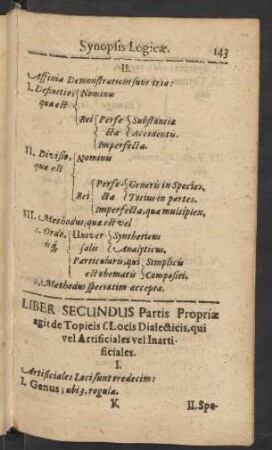 Synopsis Logicæ. 143
II.
Affinia Demonstrationi sunt tria:
I. Definitio, Nominis
quæ est
Rei Perfe- Substantiæ
cta Accidentis.
Imperfecta.
II. Divisio, Nominis
quæ est
Perfe- Generis in Species,
Rei cta Totius in partes.
Imperfecta, quæ multiplex.
III. Methodus, quæ est vel
1. Ordo, Univer- Syntheticus
isq; salis Analyticus,
Particularis, qui Simplicis
est thematis Compositi,
2. Methodus speciatim accepta.
LIBER SECUNDUS Partis Propriæ
agit de Topicis s. Locis Dialecticis, qui
vel Artificiales vel Inarti-
ficiales.
I.
Artificiales Loci sunt tredecim:
I. Genus; ubi 3. regulæ.
K II. Spe-